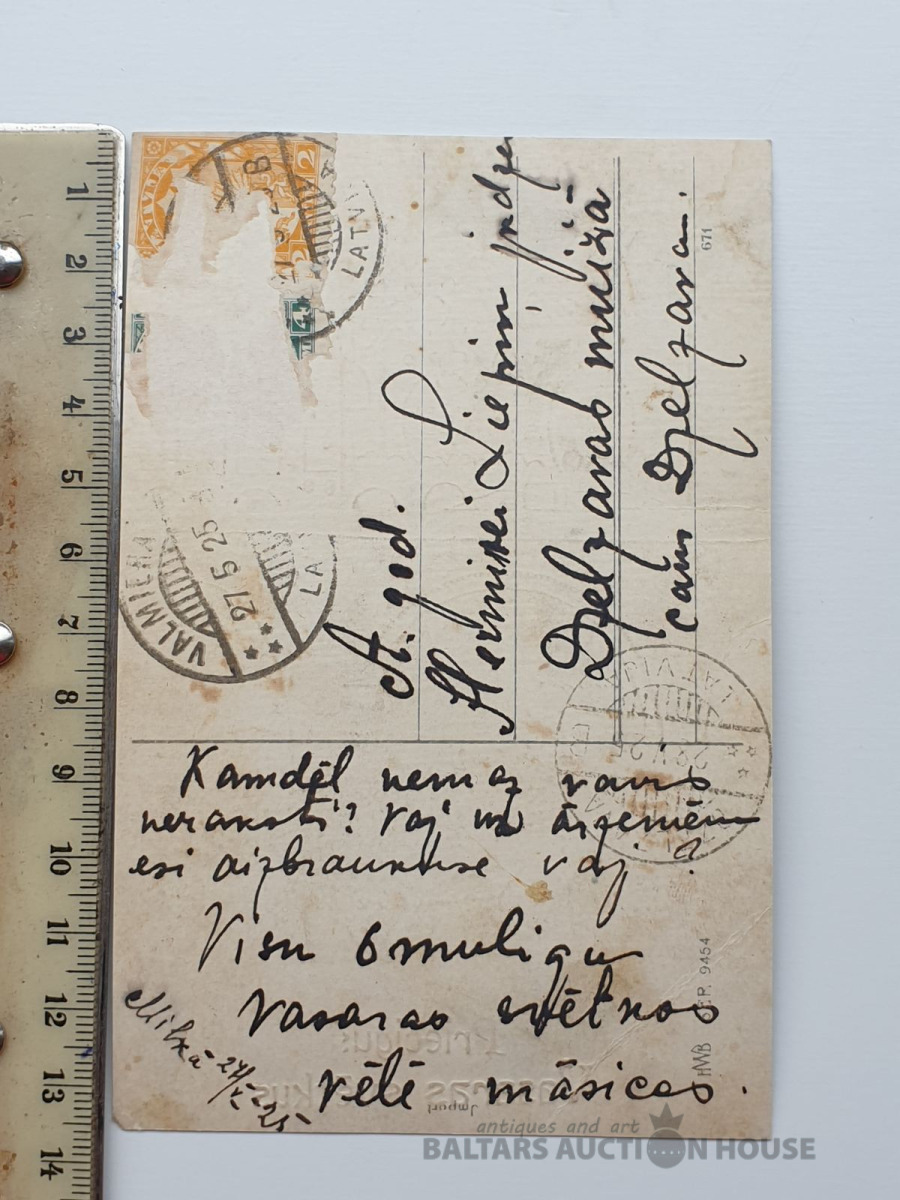 Kamdēļ nemaz vairs
neraksti? Vaj uz ārzemēm
esi aizbraukuse vaj ?
Visu ömuligu
vasaras svētkos
vēlē māsicas.
27/V-25
A. god.
Herminei Liepiņ jndze
Dzelzavas muižā
caur Dzelzavu.
VALMIERA
27 5 25
LATVIJA
LATVIJA
2
671
HWB
9454
Import
Priecīgus
Vasaras svētkus
1
2
3
4
5
6
7
8
9
10
11
12
13
14
antiques and art
BALTARS AUCTION HOUSE